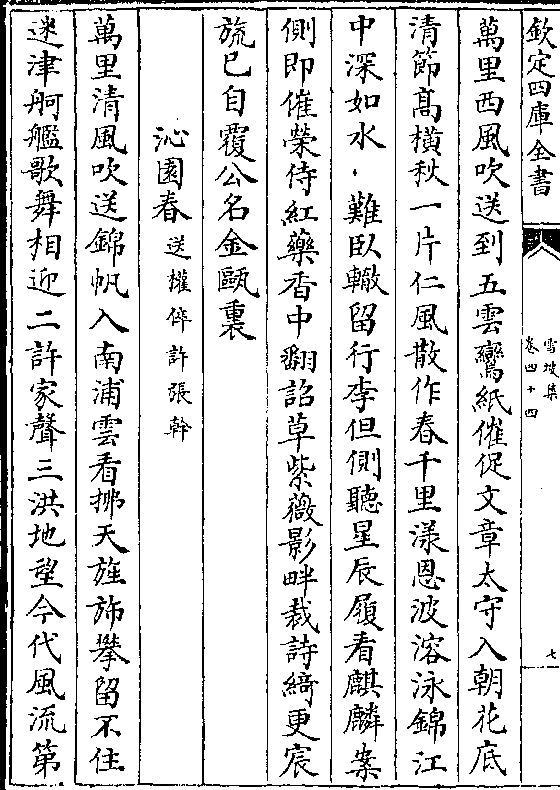 欽定四庫全書
雪坡集
卷四十四
七
萬里西風吹送到五雲鸞紙催促文章太守入朝花底
清節髙橫秋一片仁風散作春千里漾恩波溶泳錦江
中深如水．難臥轍留行李但側聽星辰履看麒麟案
側即催榮侍紅藥香中翻詔草紫薇影畔裁詩綺更宸
旒已自覆公名金甌裏
沁園春送權倅許張幹
萬里清風吹送錦帆入南浦雲看拂天旌斾攀留不住
迷津舸艦歌舞相迎二許家聲三洪地望今代風流第